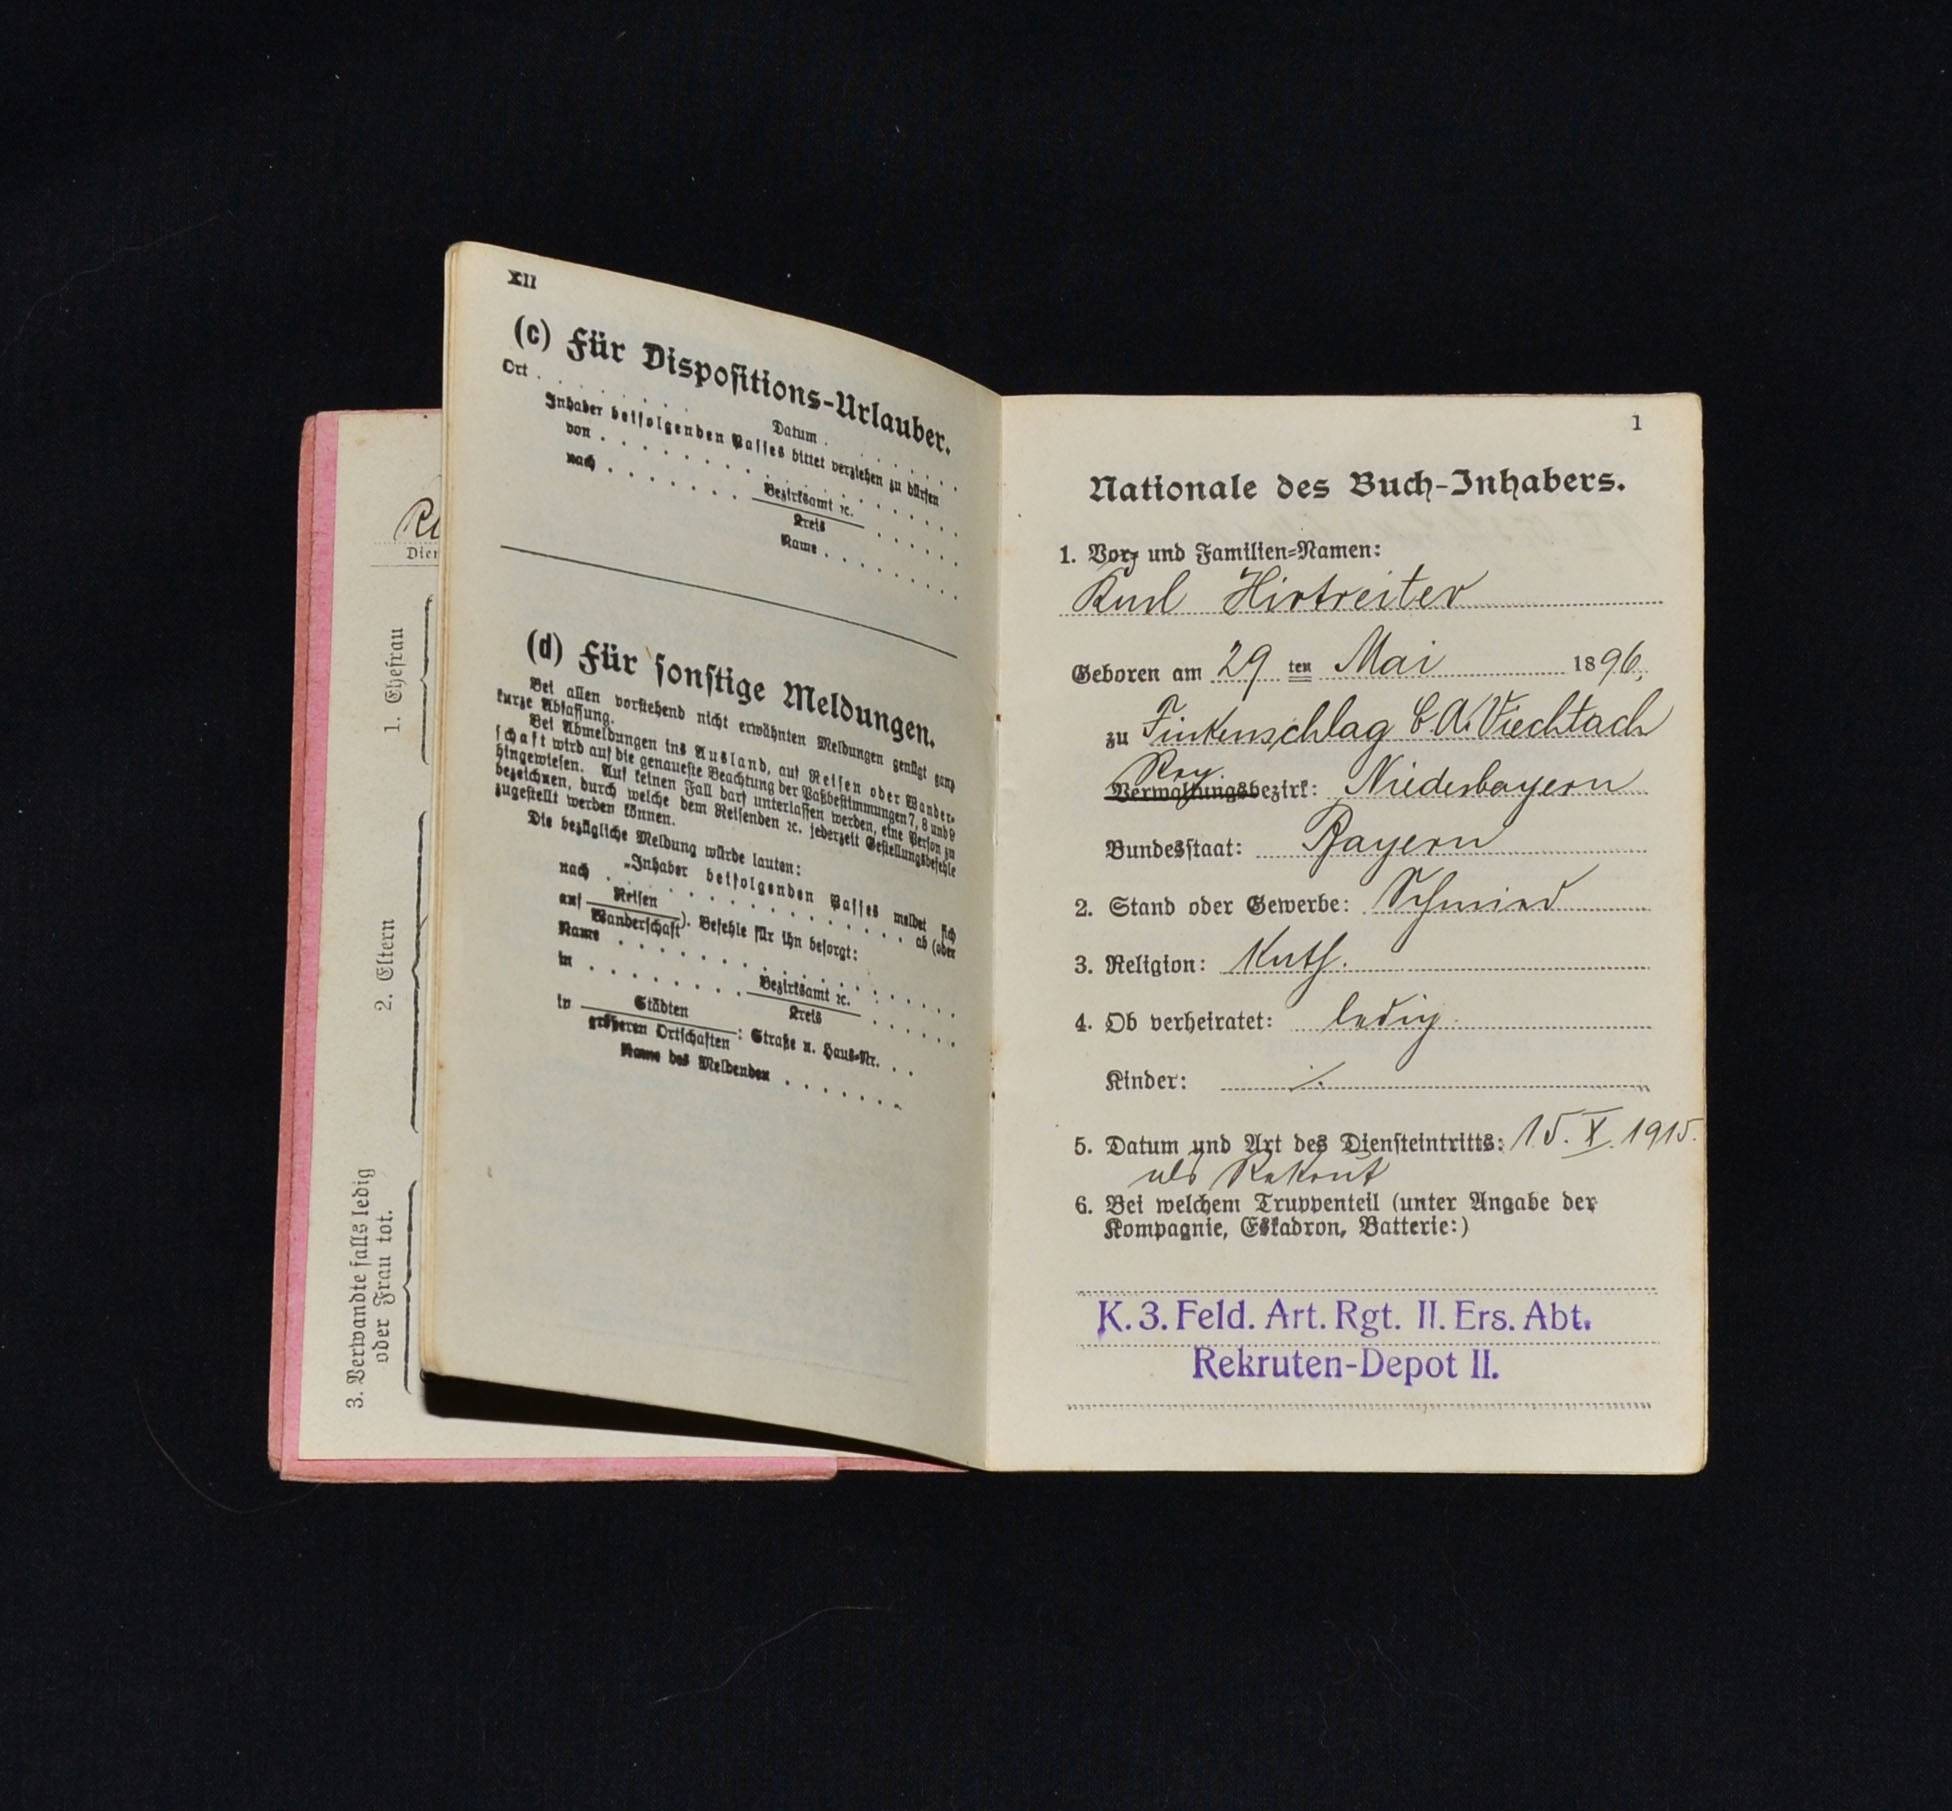 XII
(c) Für Dispositions-Urlauber.
Ort . . . . . . Datum . . . . . .
Inhaber beifolgenden Passes bittet verziehen zu dürfen
von . . . . . . . . . . . .
nach . . . . . . . Bezirksamt ꝛc. . . . . .
Kreis
Name . . . . . . .
(d) Für sonstige Meldungen.
Bei allen vorstehend nicht erwähnten Meldungen genügt ganz
kurze Abfassung.
Bei Abmeldungen ins Ausland, auf Reisen oder Wander-
schaft wird auf die genaueste Beachtung der Paßbestimmungen 7, 8 und 9
hingewiesen. Auf keinen Fall darf unterlassen werden, eine Person zu
bezeichnen, durch welche dem Reisenden ꝛc. jederzeit Gestellungsbefehle
zugestellt werden können.
Die bezügliche Meldung würde lauten:
„Inhaber beifolgenden Passes meldet sich
nach . . . . . . . . . . . . ab (oder
auf Reisen
Wanderschaft). Befehle für ihn besorgt:
Name . . . . . . . . . . . .
in . . . . . . . Bezirksamt ꝛc. . . . . .
Kreis
in Städten
größeren Ortschaften : Straße u. Haus-Nr. . . .
Name des Meldenden . . . . . . .
1. Ehefrau
2. Eltern
3. Verwandte falls ledig
oder Frau tot.
1
Nationale des Buch-Inhabers.
1. Vor- und Familien-Namen:
Karl Hirtreiter
Geboren am 29 ten Mai 1896,
zu Finkenschlag B.A. Viechtach
Reg.
Verwaltungsbezirk: Niederbayern
Bundesstaat: Bayern
2. Stand oder Gewerbe: Schmied
3. Religion: Kath.
4. Ob verheiratet: ledig
Kinder: ./.
5. Datum und Art des Diensteintritts: 15. X. 1915.
als Rekrut
6. Bei welchem Truppenteil (unter Angabe der
Kompagnie, Eskadron, Batterie:)
K. 3. Feld. Art. Rgt. II. Ers. Abt.
Rekruten-Depot II.